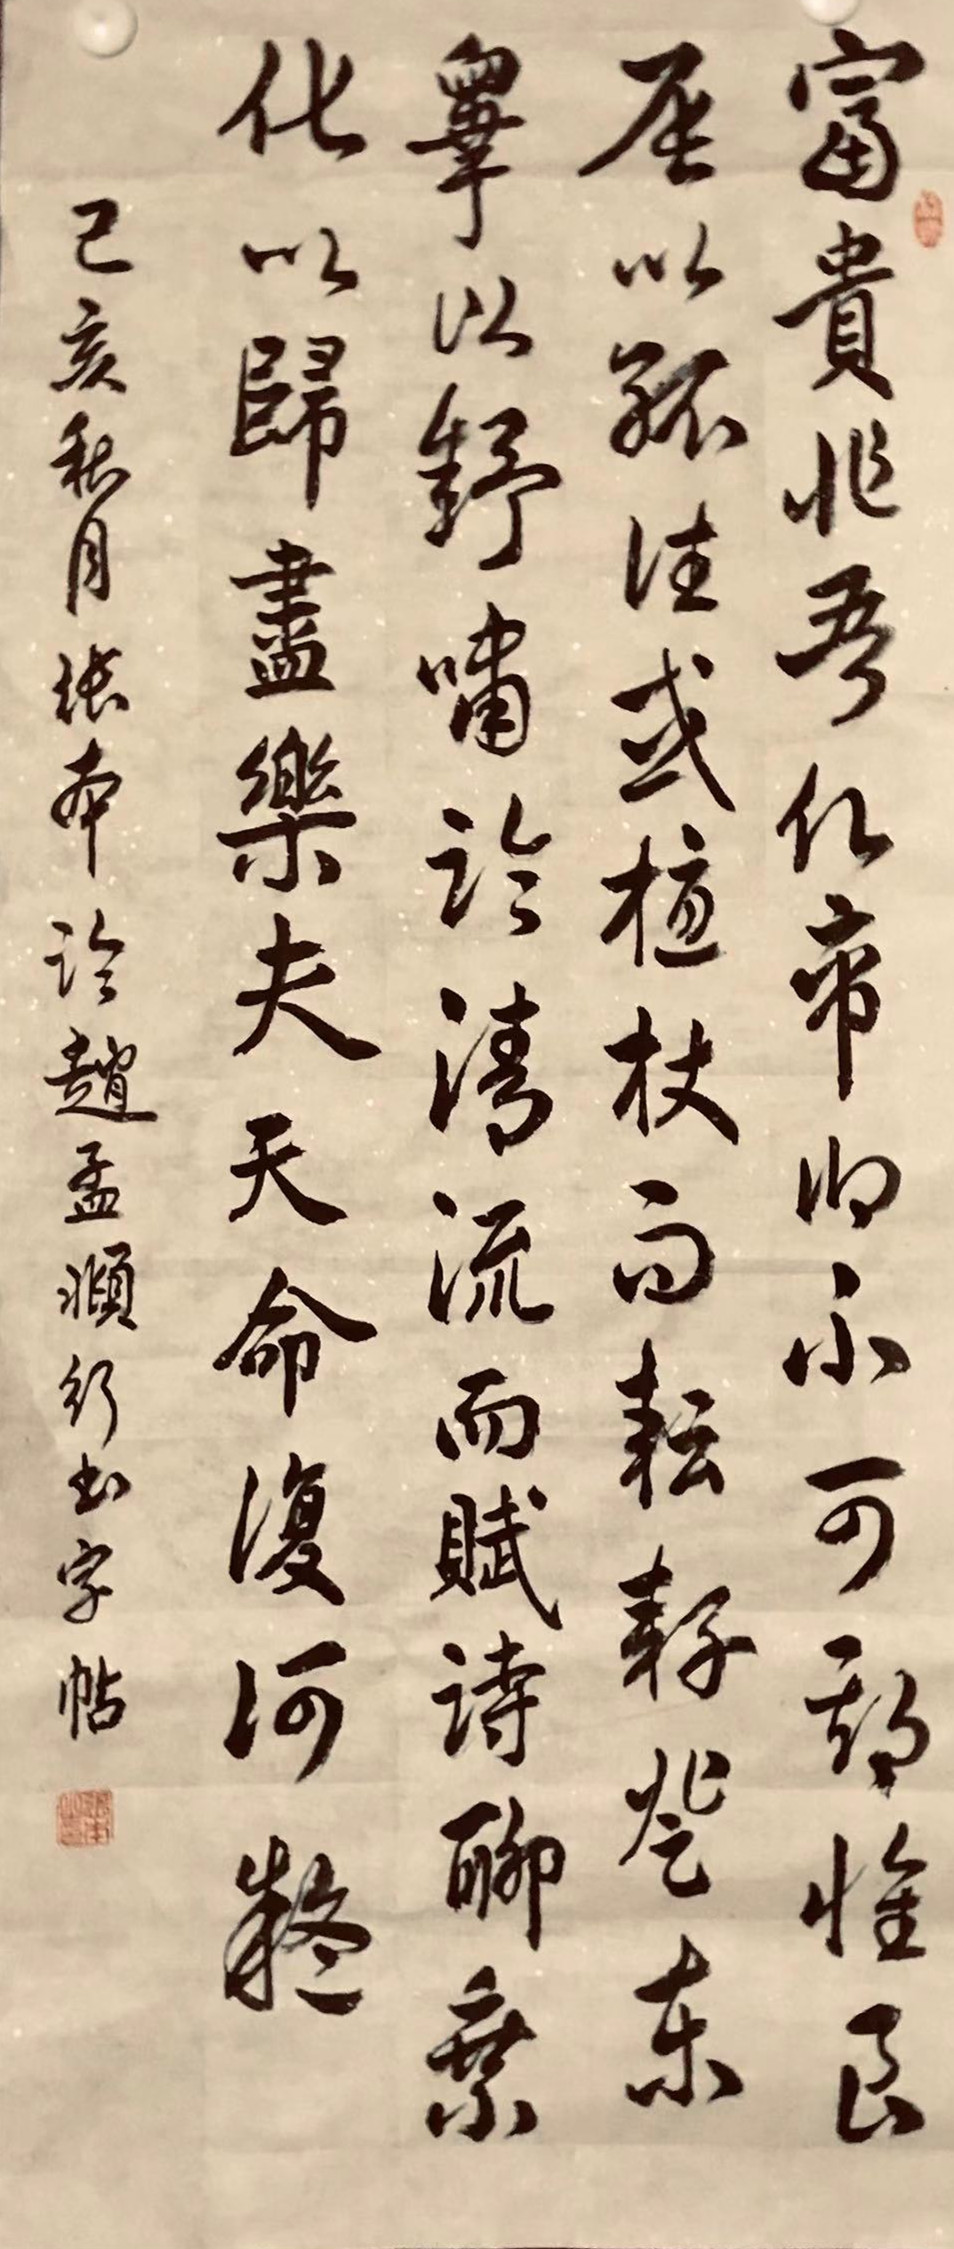 富貴非吾願帝鄉不可期懷良
辰以孤往或植杖而耘耔登東
皋以舒嘯臨清流而賦詩聊乘
化以歸盡樂夫天命復何疑
己亥秋月張本臨趙孟頫行书字帖